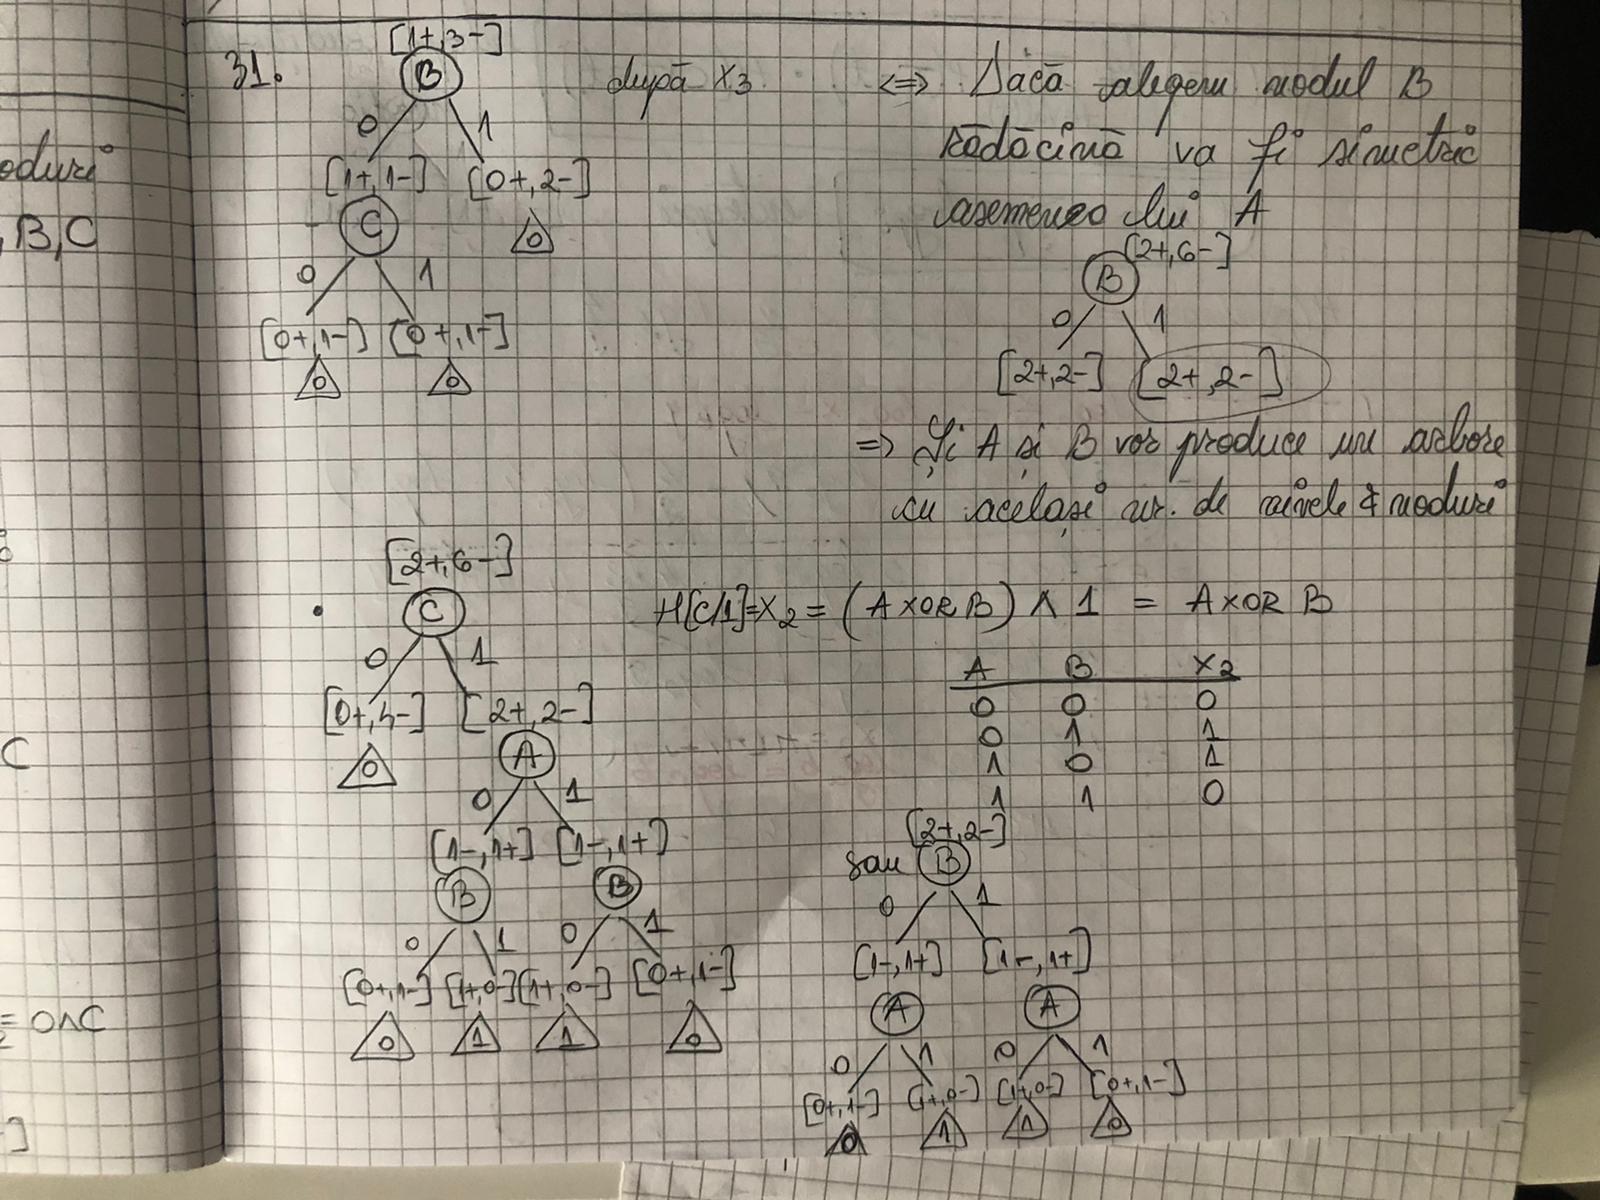 31.
[1+,3-]
B
0 1
[1+,1-] [0+,2-]
C 0
0 1
[0+,1-] [0+,1-]
0 0
după X3
<=> Dacă alegem nodul B
rădăcină va fi simetric
asemenea lui A
[2+,6-]
B
0 1
[2+,2-] [2+,2-]
=> Și A și B vor produce un arbore
cu același nr. de nivele & noduri
[2+,6-]
C
0 1
[0+,4-] [2+,2-]
0 A
0 1
[1-,1+] [1-,1+]
B B
0 1 0 1
[0+,1-] [1+,0-] [1+,0-] [0+,1-]
0 1 1 0
H[C/1]=X2 = (A XOR B) ∧ 1 = A XOR B
A B X2
0 0 0
0 1 1
1 0 1
1 1 0
[2+,2-]
sau B
0 1
[1-,1+] [1-,1+]
A A
0 1 0 1
[0+,1-] [1+,0-] [1+,0-] [0+,1-]
0 1 1 0
oduri
, B, C
C
= 0∧C
-]